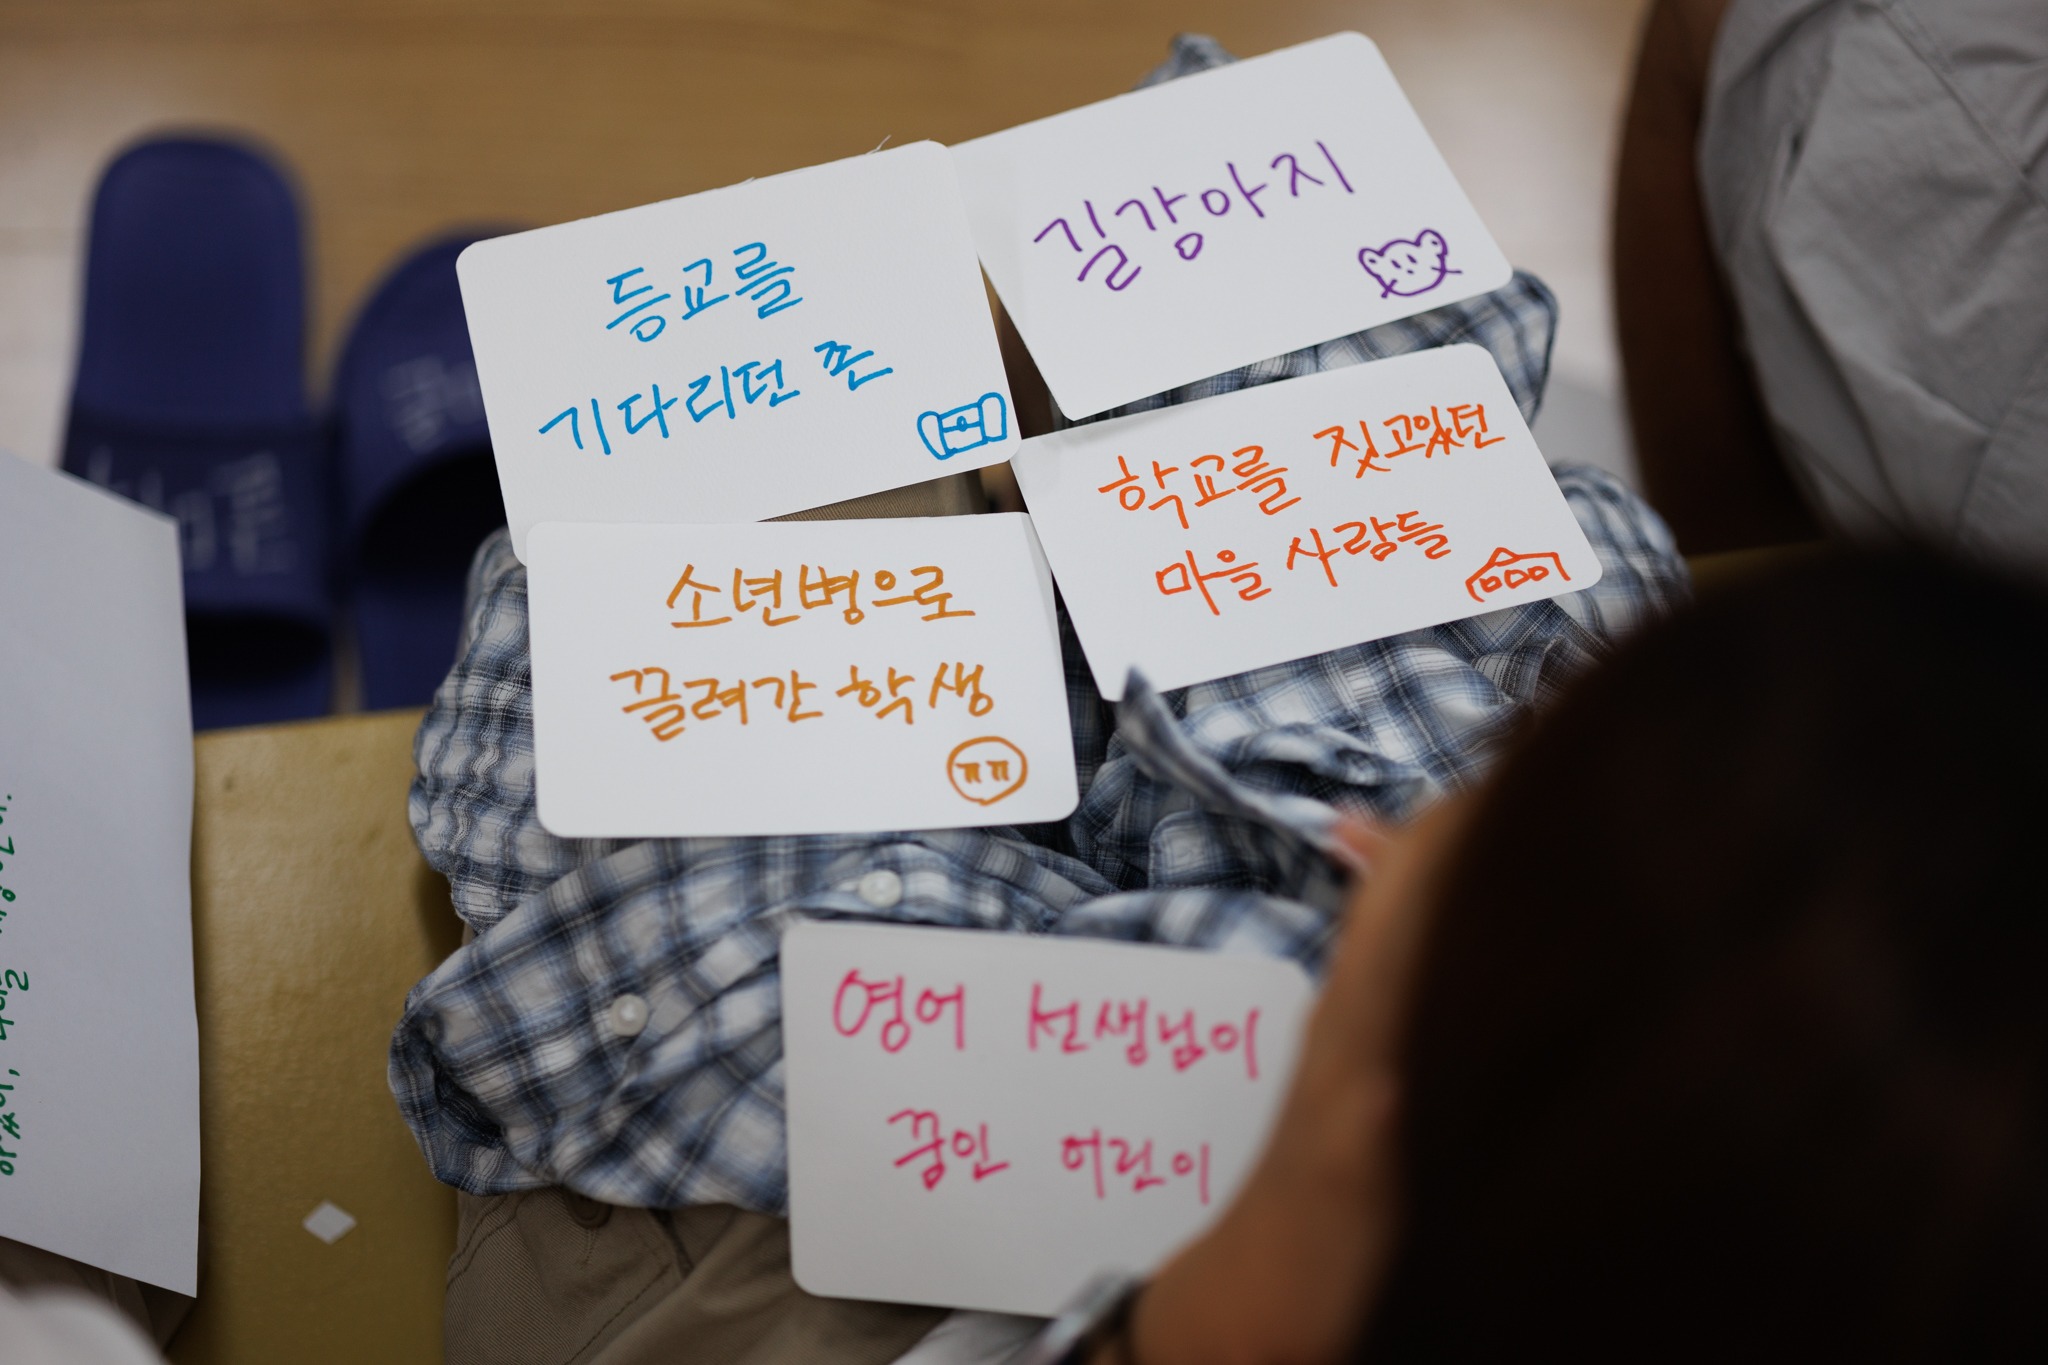 등교를
기다리던 존
길강아지
학교를 짓고있던
마을 사람들
소년병으로
끌려간 학생
ㅠㅠ
영어 선생님이
꿈인 어린이